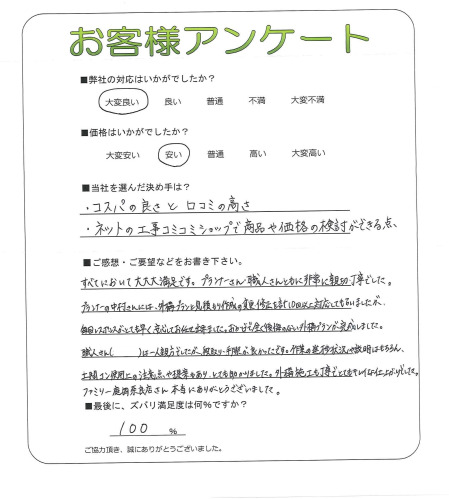 お客様アンケート
■弊社の対応はいかがでしたか?
大変良い 良い 普通 不満 大変不満
■価格はいかがでしたか?
大変安い 安い 普通 高い 大変高い
■当社を選んだ決め手は?
・コスパの良さと口コミの高さ
・ネットの工事コミコミショップで商品や価格の検討ができる点、
■ご感想・ご要望などをお書き下さい。
すべてにおいて大大大満足です。プランナーさん・職人さんともに非常に親切丁寧でした。
プランナーの中村さんには、外構プランと見積もり作成の変更・修正を計10回以上対応してもらいましたが、
毎回レスポンスがとても早く安心してお任せ出来ました。おかげで全く後悔のない外構プランが完成しました。
職人さん( )は一人親方でしたが、段取り・手際が良かったです。作業の進捗状況や説明はもちろん、
土間コン使用上の注意点や提案もあり、とても助かりました。外構施工も丁寧でとてもキレイな仕上がりでした。
ファミリー庭 奈良店さん本当にありがとうございました。
■最後に、ズバリ満足度は何%ですか?
100 %
ご協力頂き、誠にありがとうございました。